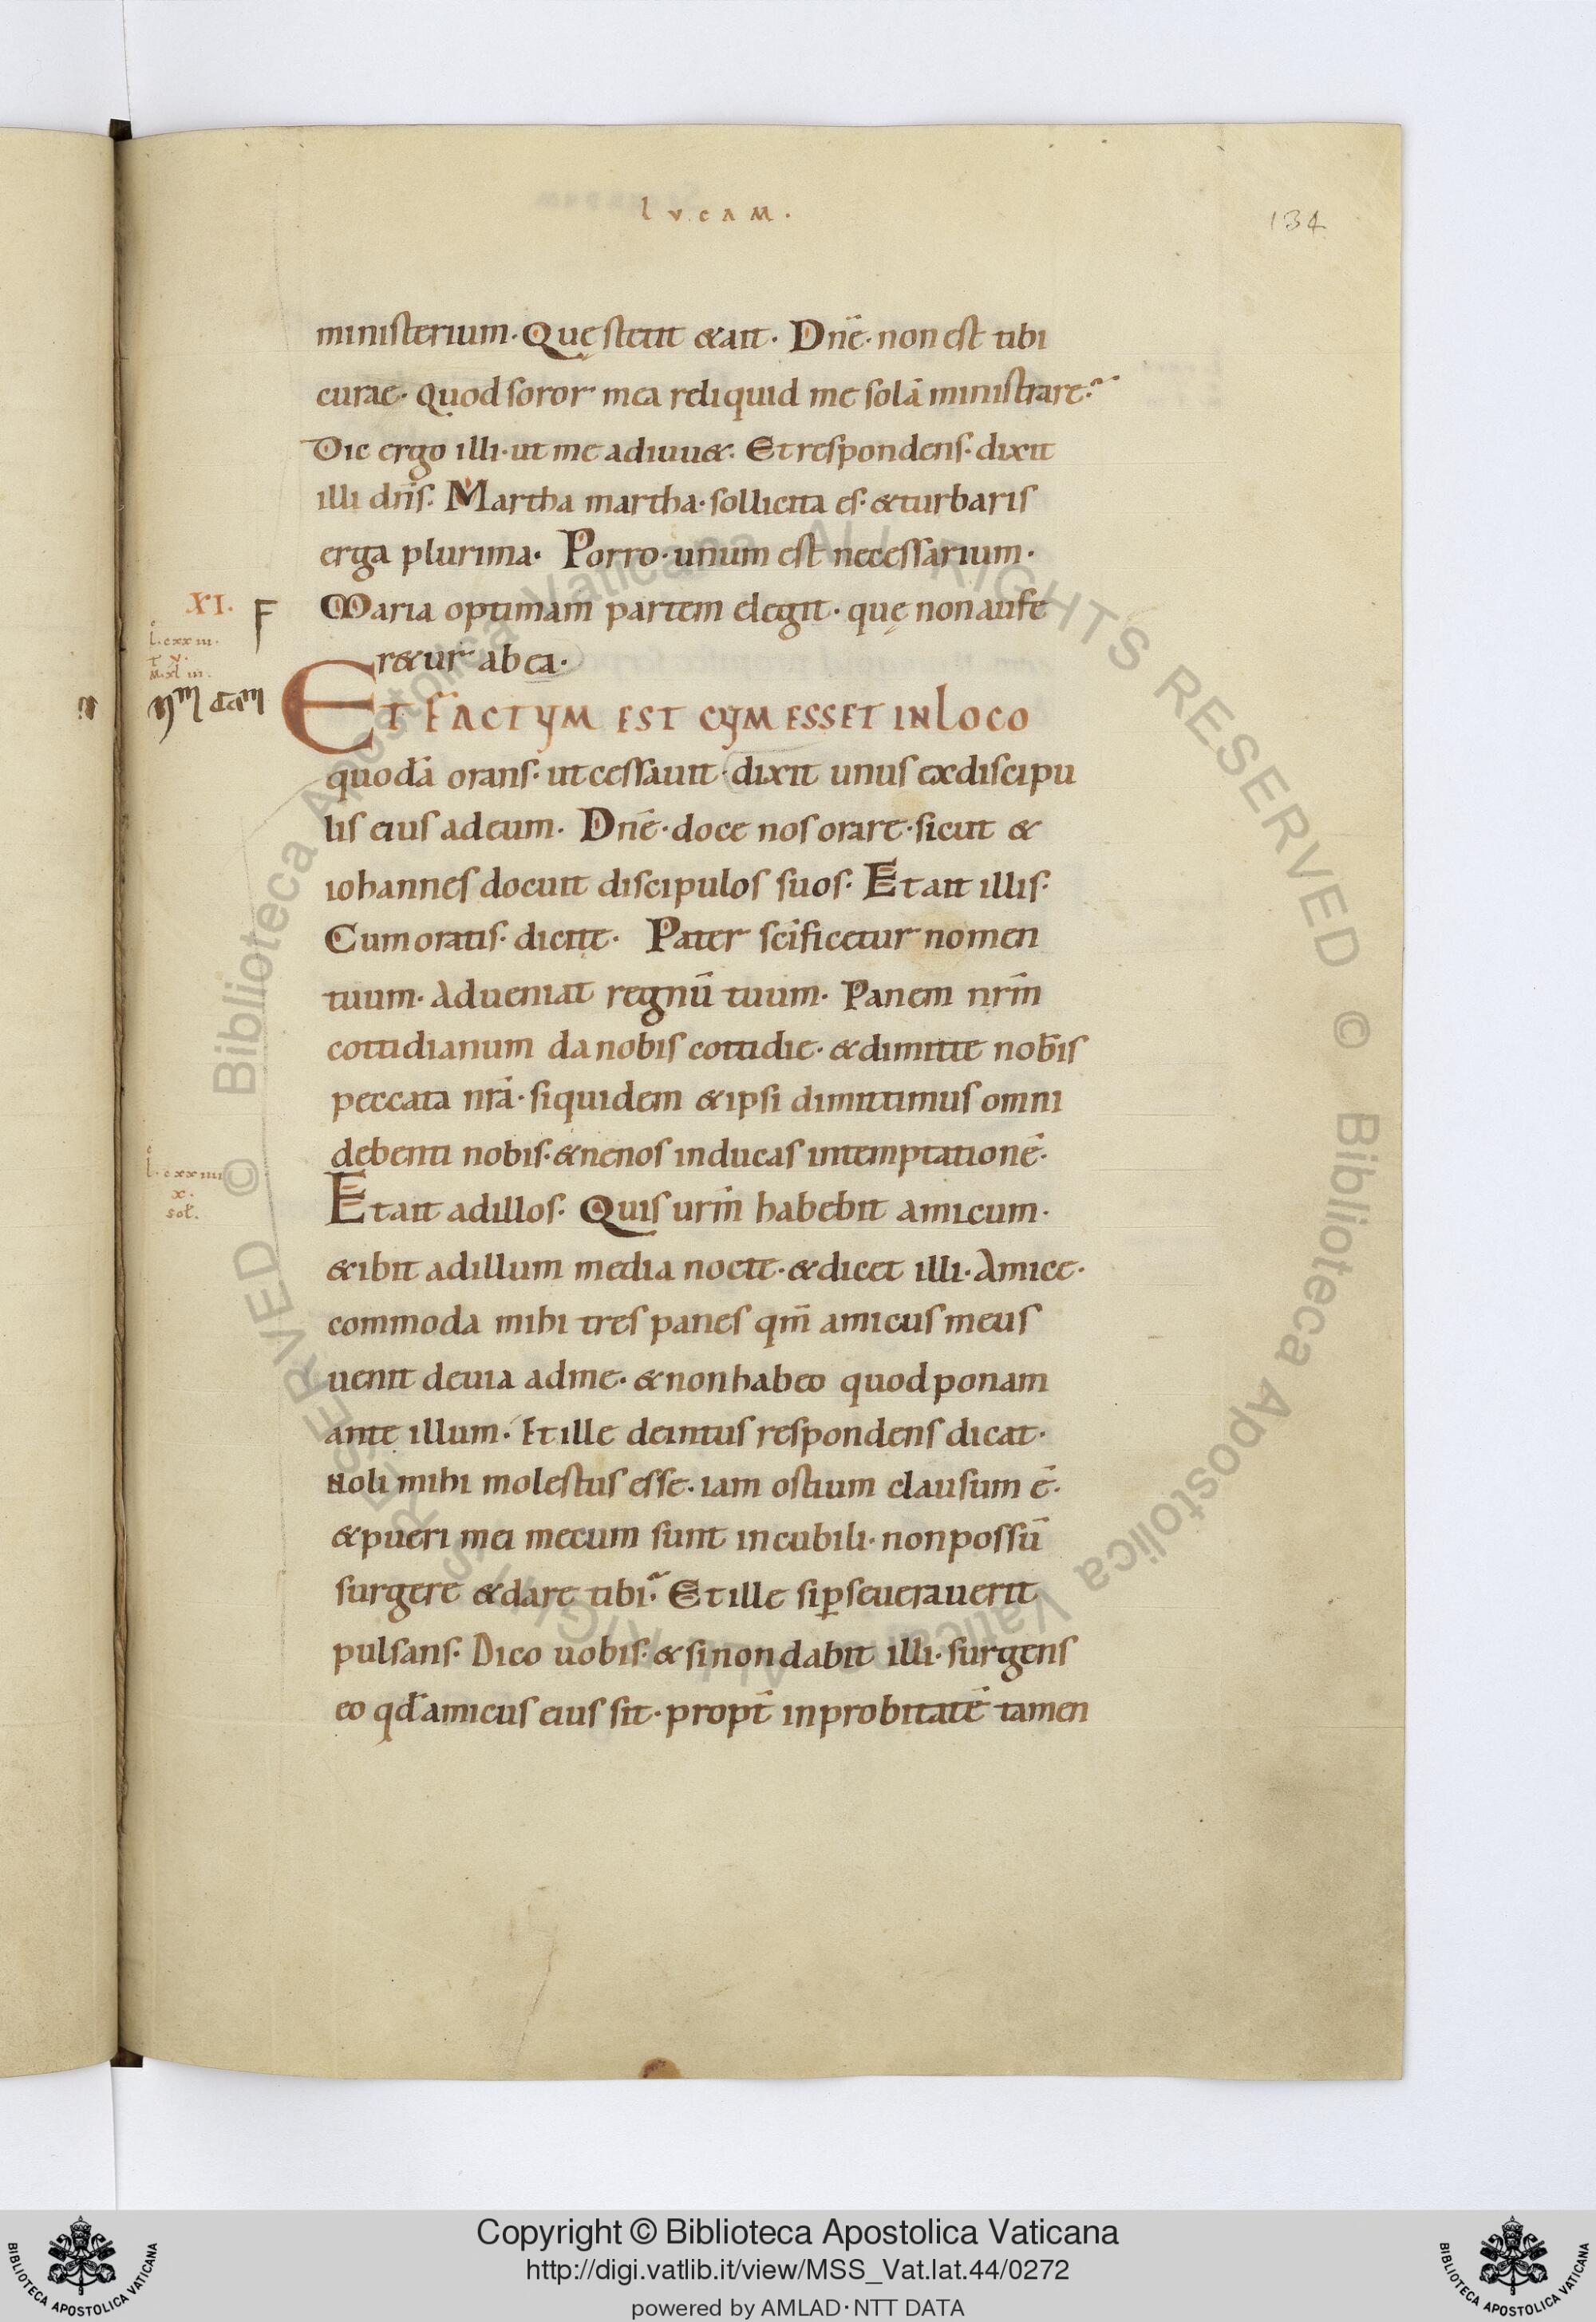 lvcAM.
134
ministerium. Quę stetit & ait. Dn̄e. non est tibi
curae. quod soror mea reliquid me solā ministrare?
Dic ergo illi. ut me adiuu&. Et respondens. dixit
illi dn̄s. Martha martha. sollicita es. & turbaris
erga plurima. Porro. unum est necessarium.
XI. F
Maria optimam partem elegit. quę non aufe
L. cxxiii.
r&ur ab ea.
v.
M. xliii.
ET FACTUM EST CUM ESSET IN LOCO
quodā orans. ut cessauit. dixit unus ex discipu
lis eius ad eum. Dn̄e. doce nos orare. sicut &
iohannes docuit discipulos suos. Et ait illis.
Cum oratis. dicite. Pater sc̄ificetur nomen
tuum. Adueniat regnū tuum. Panem nr̄m
cottidianum da nobis cottidie. & dimitte nob̄is
peccata nr̄a. siquidem & ipsi dimittimus omni
debenti nobis. & ne nos inducas in temptationē.
L. cxxiiii
x.
sol.
Et ait ad illos. Quis ur̄m habebit amicum.
& ibit ad illum media nocte. & dicet illi. Amice.
commoda mihi tres panes qm̄ amicus meus
uenit de uia ad me. & non habeo quod ponam
ante illum. Et ille deintus respondens dicat.
Noli mihi molestus esse. iam ostium clausum ē.
& pueri mei mecum sunt in cubili. non possū
surgere & dare tibi? Et ille si ꝑseuerauerit
pulsans. Dico uobis. & si non dabit illi. surgens
eo qd̄ amicus eius sit. propt̄ inprobitatē tamen
Copyright © Biblioteca Apostolica Vaticana
http://digi.vatlib.it/view/MSS_Vat.lat.44/0272
powered by AMLAD·NTT DATA
BIBLIOTECA APOSTOLICA VATICANA
BIBLIOTECA APOSTOLICA VATICANA
© Biblioteca Apostolica Vaticana ALL RIGHTS RESERVED © Biblioteca Apostolica Vaticana ALL RIGHTS RESERVED